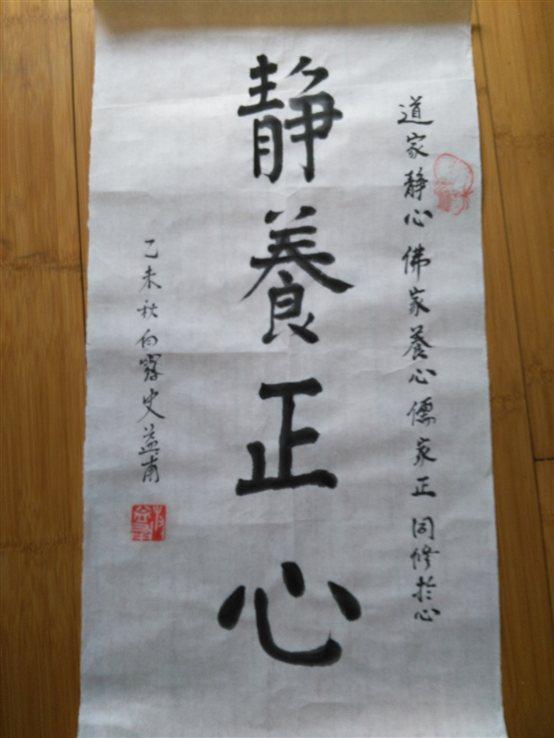 道家静心佛家養心儒家正同修於心
静養正心
乙未秋白露史益甫